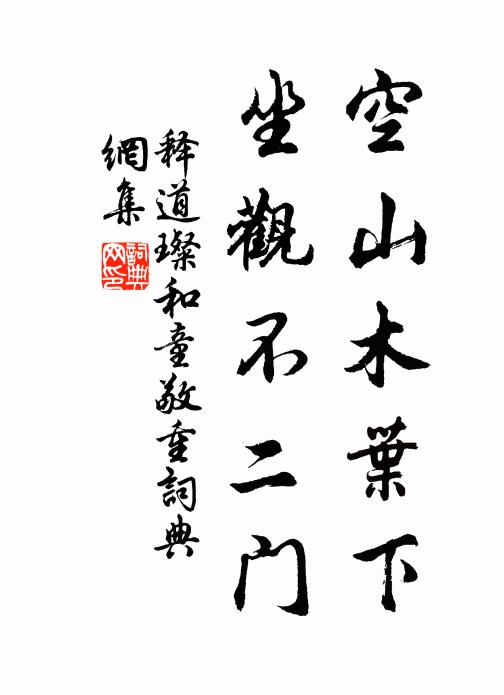 空山木葉下
坐觀不二門
释道璨和童敬重詞典
網集
詞典
网印